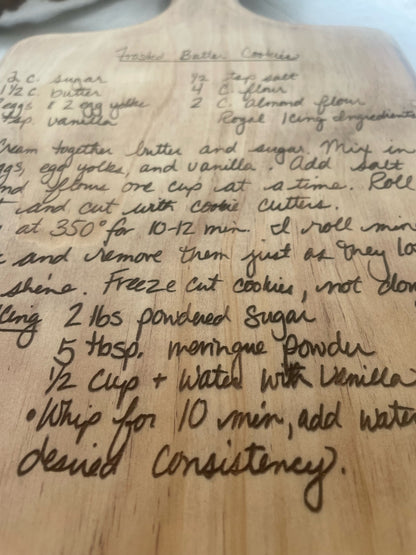 Frosted Butter Cookies
2 c. sugar ½ tsp salt
1½ c. butter 4 c. flour
eggs & 2 egg yolks 2 c. almond flour
tsp. vanilla Royal Icing Ingredients
Cream together butter and sugar. Mix in
eggs, egg yolks, and vanilla. Add salt
and flours one cup at a time. Roll
and cut with cookie cutters.
at 350° for 10-12 min. I roll min
and remove them just as they lo
shine. Freeze cut cookies, not
Icing 2 lbs powdered Sugar
5 tbsp. meringue powder
½ cup + Water with Vanilla
• Whip for 10 min, add water
desired consistency.